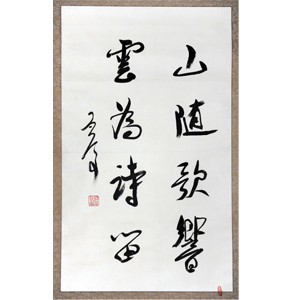 山随歌響
雲為詩留